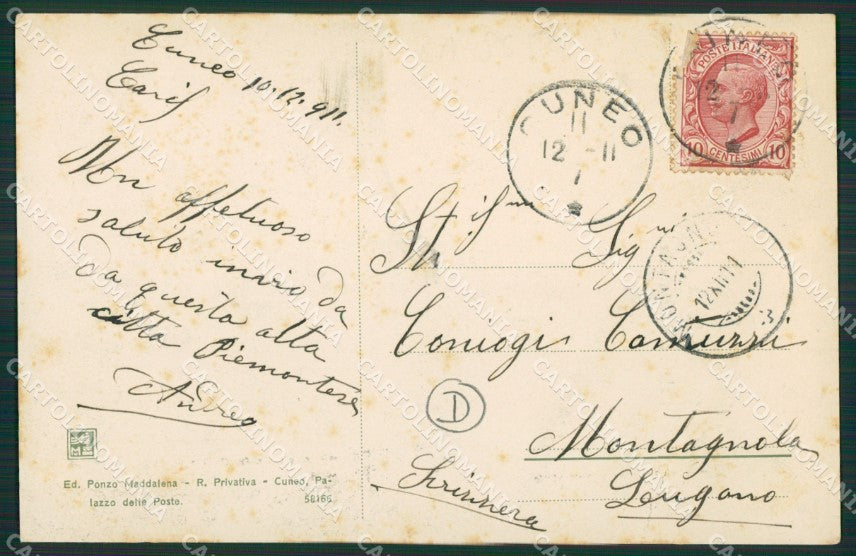 Cuneo 10.12.911.
Cariss
Un affettuoso
saluto invio da
da questa alta
città Piemontese
Andrea
Ed. Ponzo Maddalena - R. Privativa - Cuneo, Pa-
lazzo delle Poste. 58166
CUNEO
11
12 - 11
7
POSTE ITALIANE
10 CENTESIMI 10
MONTAGNOLA
12.XII.11
St.issmi Sig.ri
Coniugi Camuzzi
D
Montagnola
Lugano
Svizzera
CARTOLINOMANIA